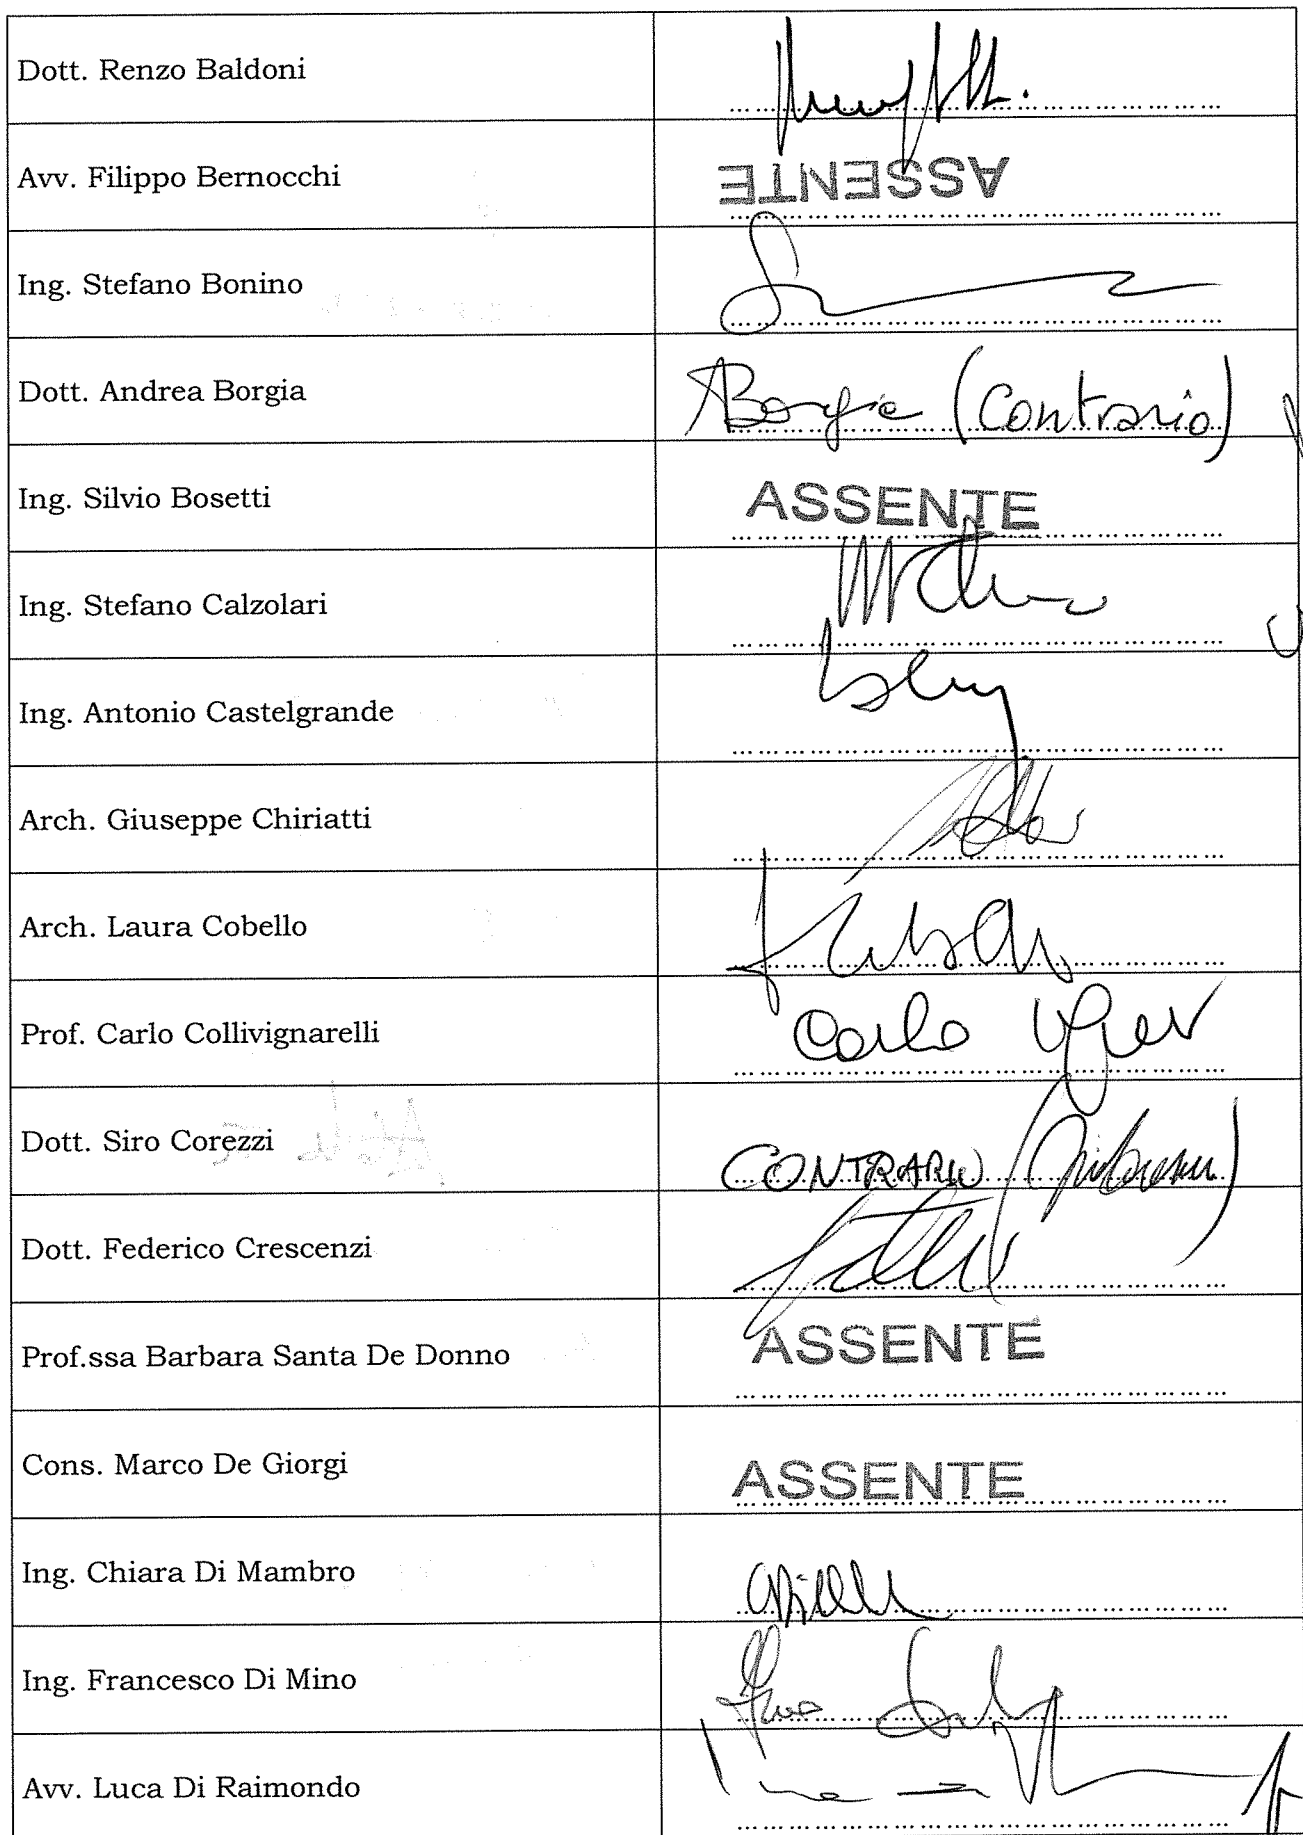 Dott. Renzo Baldoni
Avv. Filippo Bernocchi
ASSENTE
Ing. Stefano Bonino
Dott. Andrea Borgia
Borgia (Contrario)
Ing. Silvio Bosetti
ASSENTE
Ing. Stefano Calzolari
Ing. Antonio Castelgrande
Arch. Giuseppe Chiriatti
Arch. Laura Cobello
Prof. Carlo Collivignarelli
Carlo
Dott. Siro Corezzi
CONTRARIO
Dott. Federico Crescenzi
Prof.ssa Barbara Santa De Donno
ASSENTE
Cons. Marco De Giorgi
ASSENTE
Ing. Chiara Di Mambro
Ing. Francesco Di Mino
Avv. Luca Di Raimondo